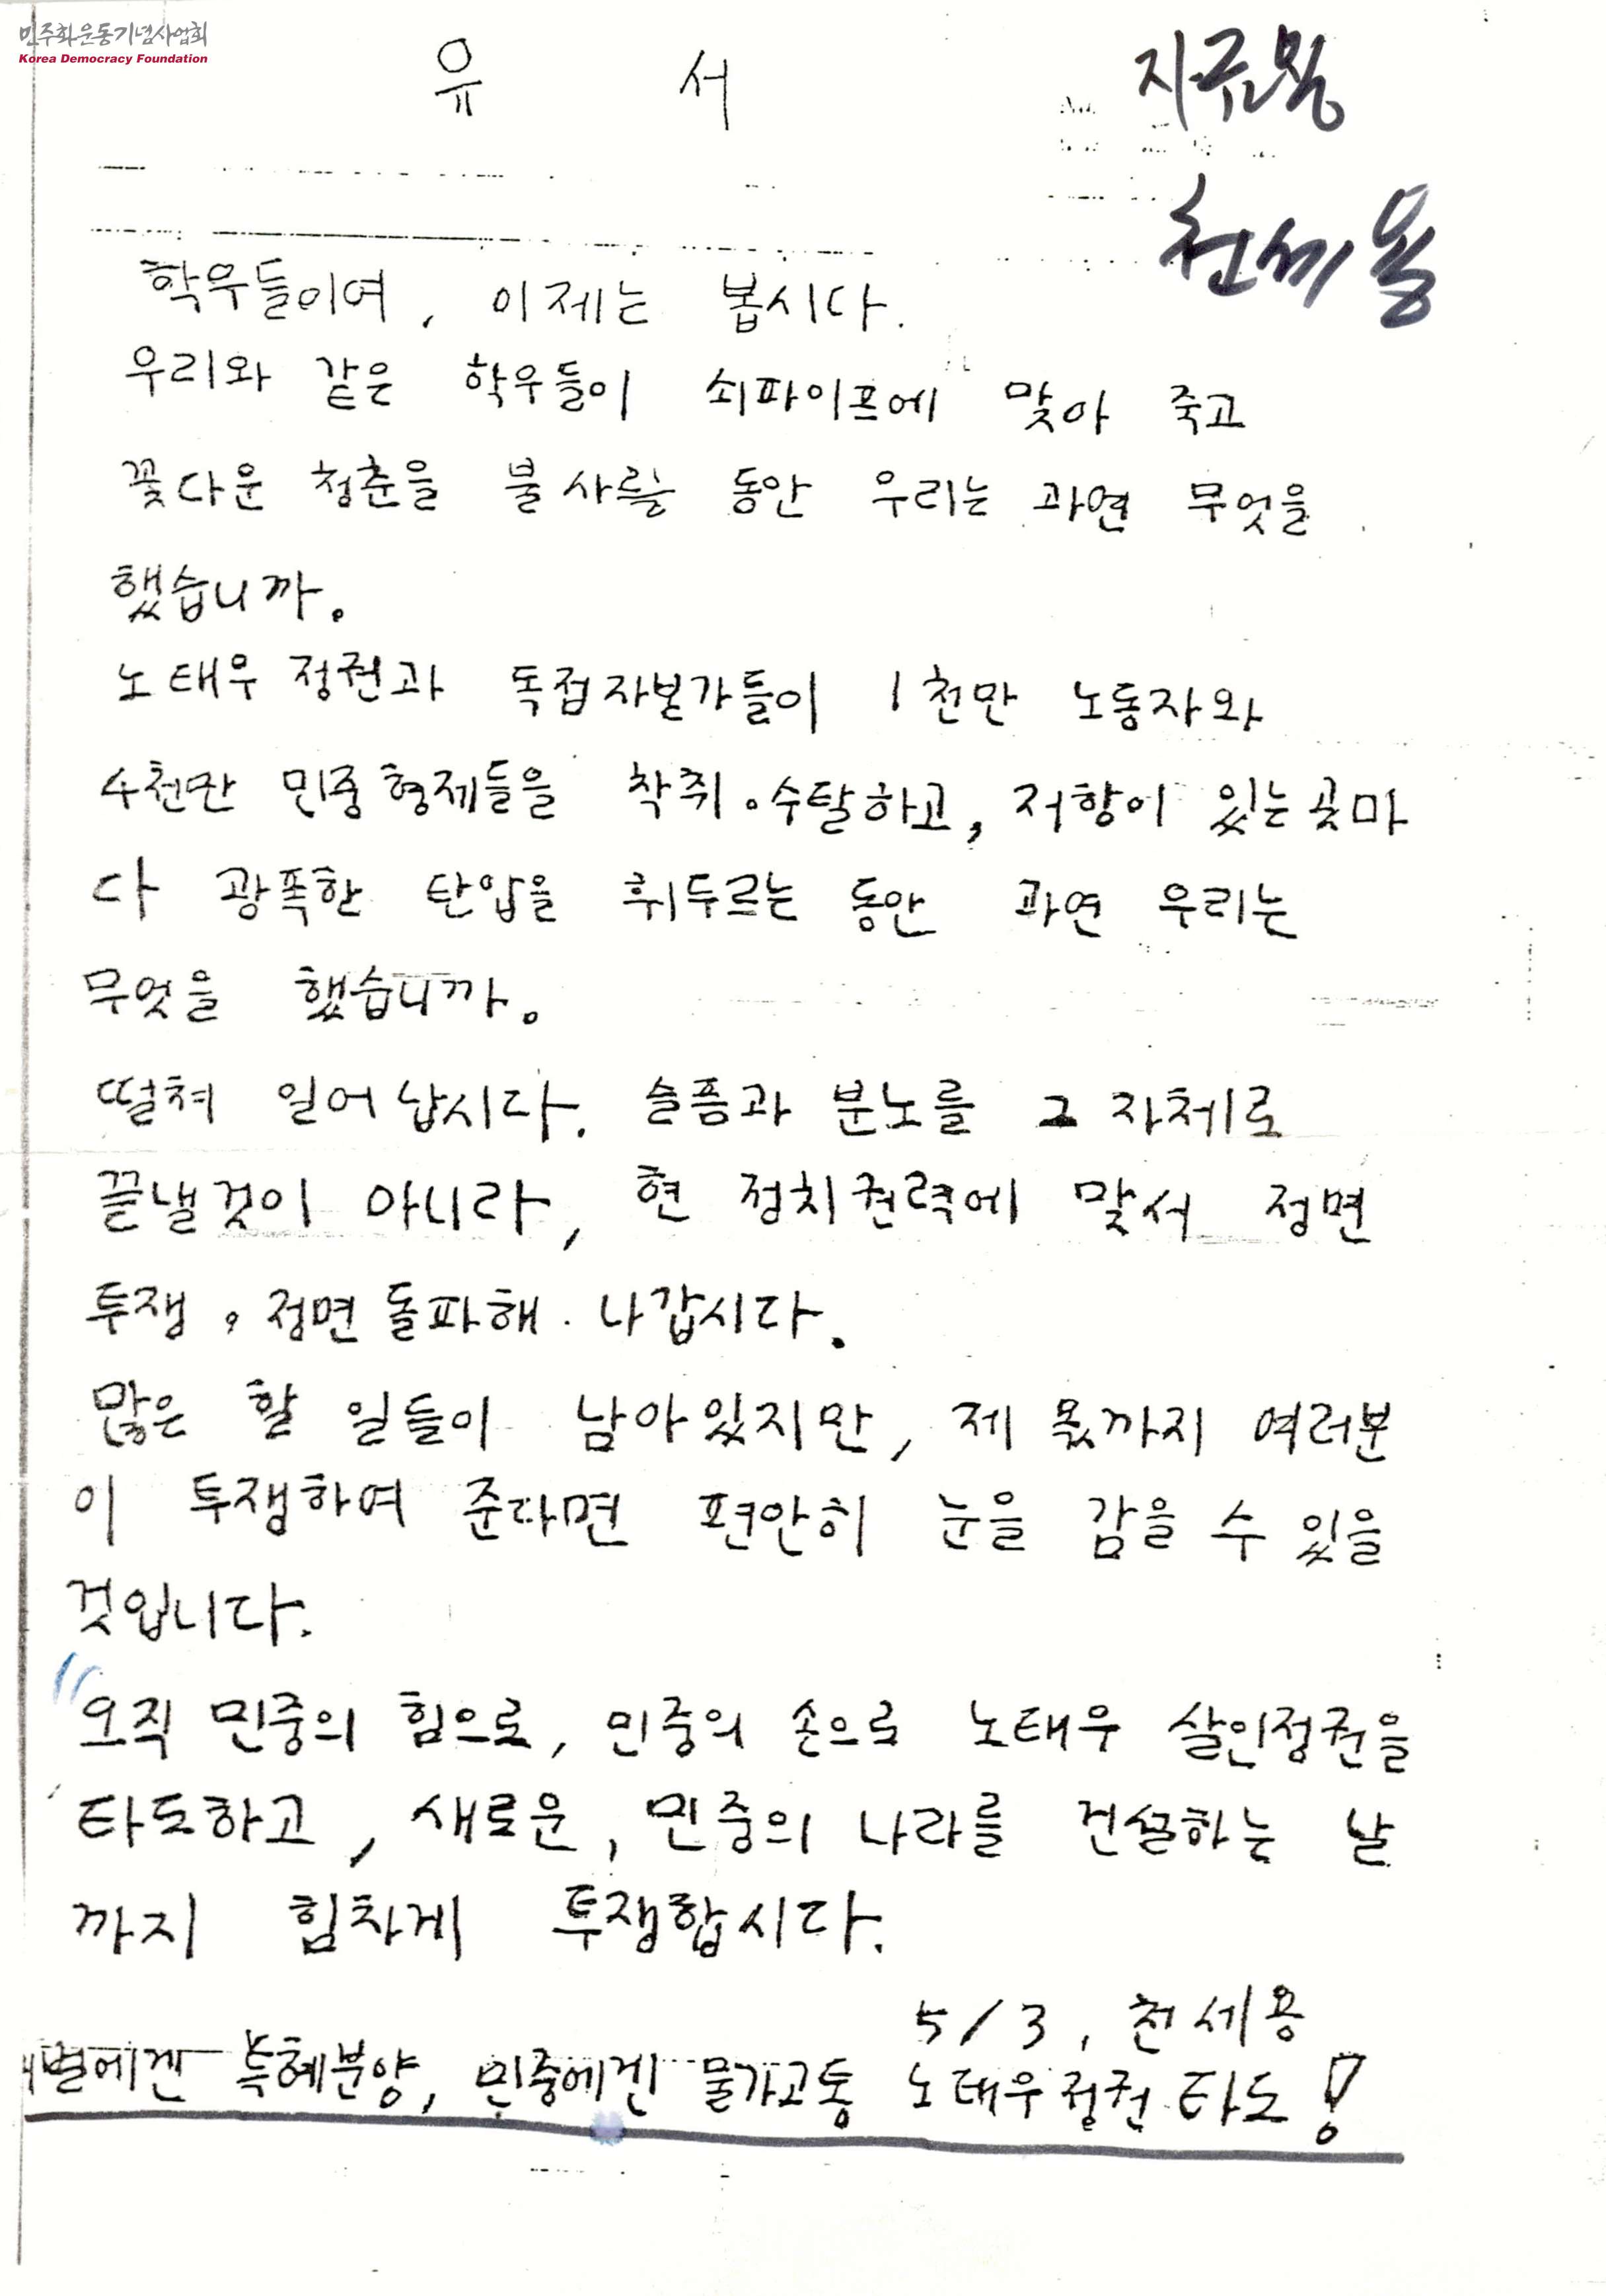 민주화운동기념사업회
Korea Democracy Foundation
유 서
천세용
학우들이여, 이제는 봅시다.
우리와 같은 학우들이 쇠파이프에 맞아 죽고
꽃다운 청춘을 불사를 동안 우리는 과연 무엇을
했습니까.
노태우 정권과 독점자본가들이 1천만 노동자와
4천만 민중형제들을 착취·수탈하고, 저항이 있는 곳마
다 광폭한 탄압을 휘두르는 동안 과연 우리는
무엇을 했습니까.
떨쳐 일어 납시다. 슬픔과 분노를 그 자체로
끝낼것이 아니라, 현 정치권력에 맞서 정면
투쟁·정면돌파해 나갑시다.
많은 할 일들이 남아있지만, 제 몫까지 여러분
이 투쟁하여 준다면 편안히 눈을 감을 수 있을
것입니다.
"오직 민중의 힘으로, 민중의 손으로 노태우 살인정권을
타도하고, 새로운, 민중의 나라를 건설하는 날
까지 힘차게 투쟁합시다.
5/3, 천세용
특혜분양, 민중에겐 물가고통 노태우정권 타도!